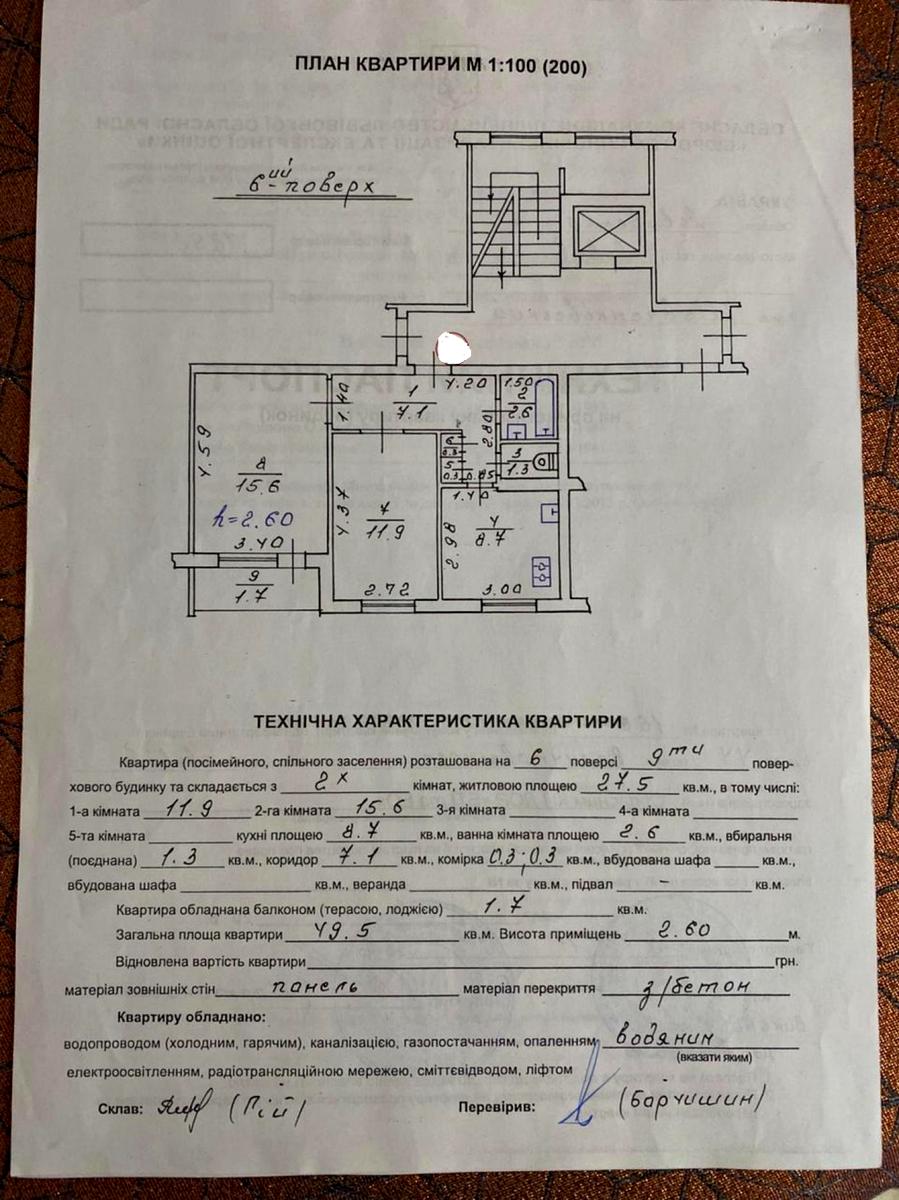 ПЛАН КВАРТИРИ М 1:100 (200)
6ий - поверх
1.40
1
7.1
4.20
1.50
2
2.6
2.80
4.59
8
15.6
h=2.60
3.40
6
0.3
5
0.3
0.85
3
1.3
1.40
4.37
7
11.9
2.98
4
8.7
9
1.7
2.72
3.00
ТЕХНІЧНА ХАРАКТЕРИСТИКА КВАРТИРИ
Квартира (посімейного, спільного заселення) розташована на 6 поверсі 9ти повер-
хового будинку та складається з 2х кімнат, житловою площею 27.5 кв.м., в тому числі:
1-а кімната 11.9 2-га кімната 15.6 3-я кімната 4-а кімната
5-та кімната кухні площею 8.7 кв.м., ванна кімната площею 2.6 кв.м., вбиральня
(поєднана) 1.3 кв.м., коридор 7.1 кв.м., комірка 0.3; 0.3 кв.м., вбудована шафа кв.м.,
вбудована шафа кв.м., веранда кв.м., підвал - кв.м.
Квартира обладнана балконом (терасою, лоджією) 1.7 кв.м.
Загальна площа квартири 49.5 кв.м. Висота приміщень 2.60 м.
Відновлена вартість квартири грн.
матеріал зовнішніх стін панель матеріал перекриття з/бетон
Квартиру обладнано:
водопроводом (холодним, гарячим), каналізацією, газопостачанням, опаленням водяним
(вказати яким)
електроосвітленням, радіотрансляційною мережею, сміттєвідводом, ліфтом
Склав: (Пій) Перевірив: (Барчишин)